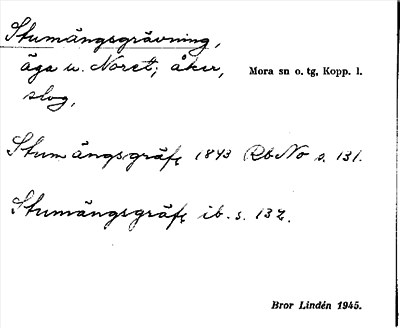 Stumängsgrävning,
äga u. Noret; åker,
slog,
Mora sn o. tg, Kopp. l.
Stumängsgräfg 1843 RbNo s. 131.
Stumängsgräfg ib. s. 132.
Bror Lindén 1945.